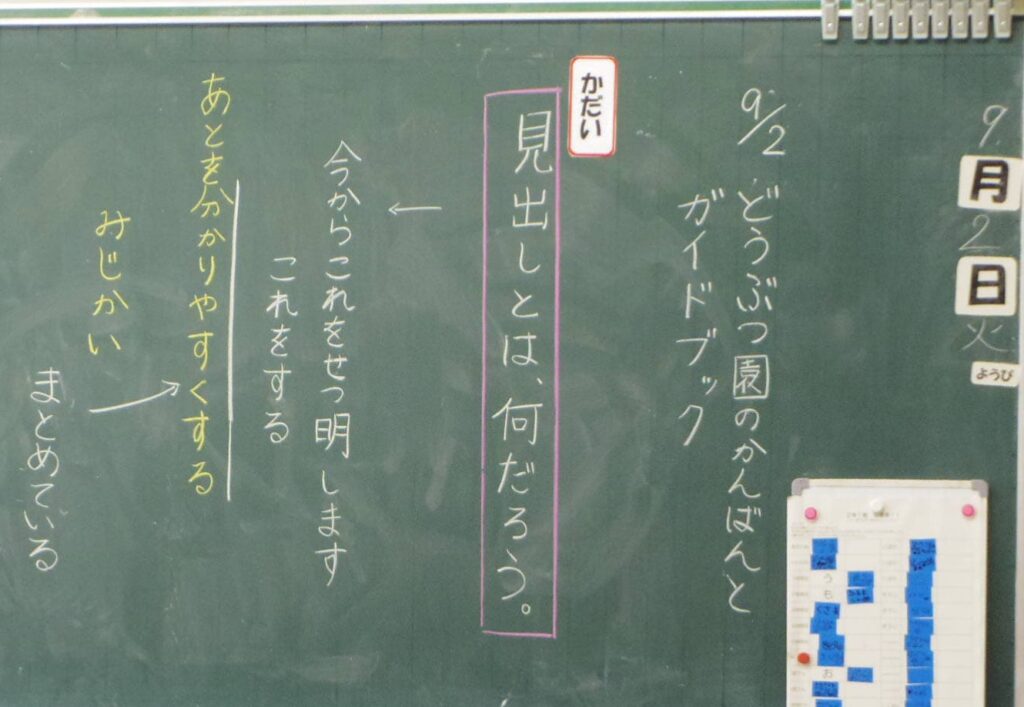 9月2日火ようび
9/2 どうぶつ園のかんばんと
ガイドブック
かだい
見出しとは、何だろう。
←
今からこれをせつ明します
これをする
あとを分かりやすくする
みじかい
まとめている